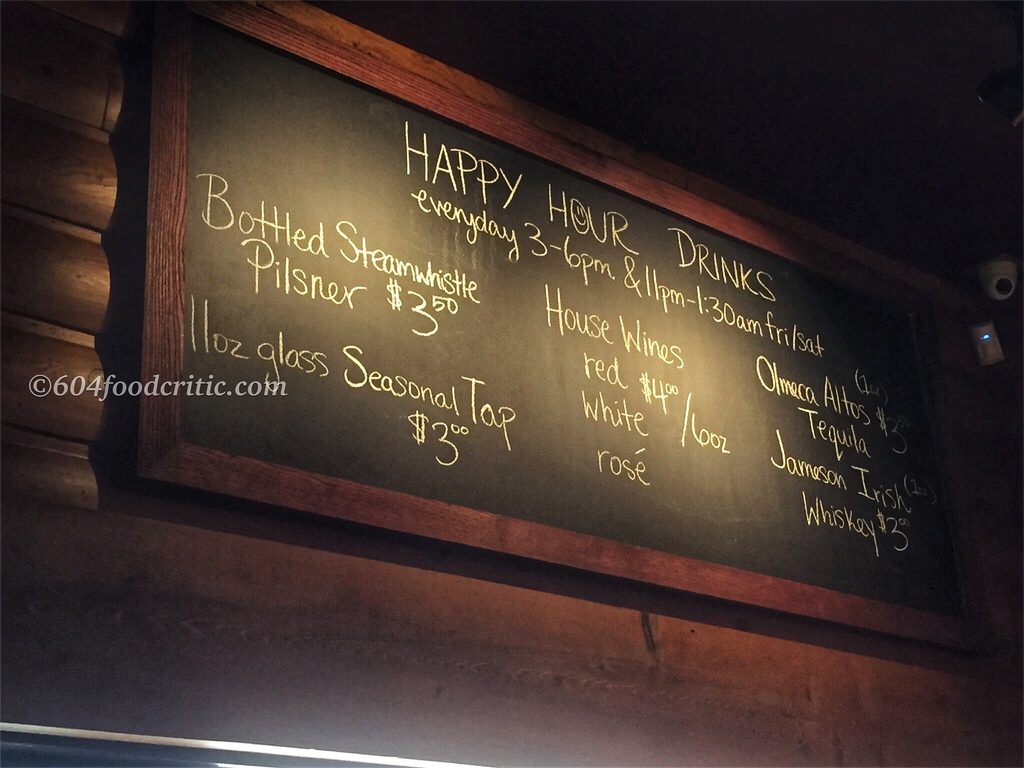 HAPPY HOUR DRINKS
everyday 3-6pm & 11pm-1:30am fri/sat
Bottled Steamwhistle
Pilsner $3.50
11oz glass Seasonal Tap
$3.00
House Wines
red $4.00
white /6oz
rosé
(1oz)
Olmeca Altos
Tequila
Jameson Irish (1oz)
Whiskey $3.00
©604foodcritic.com